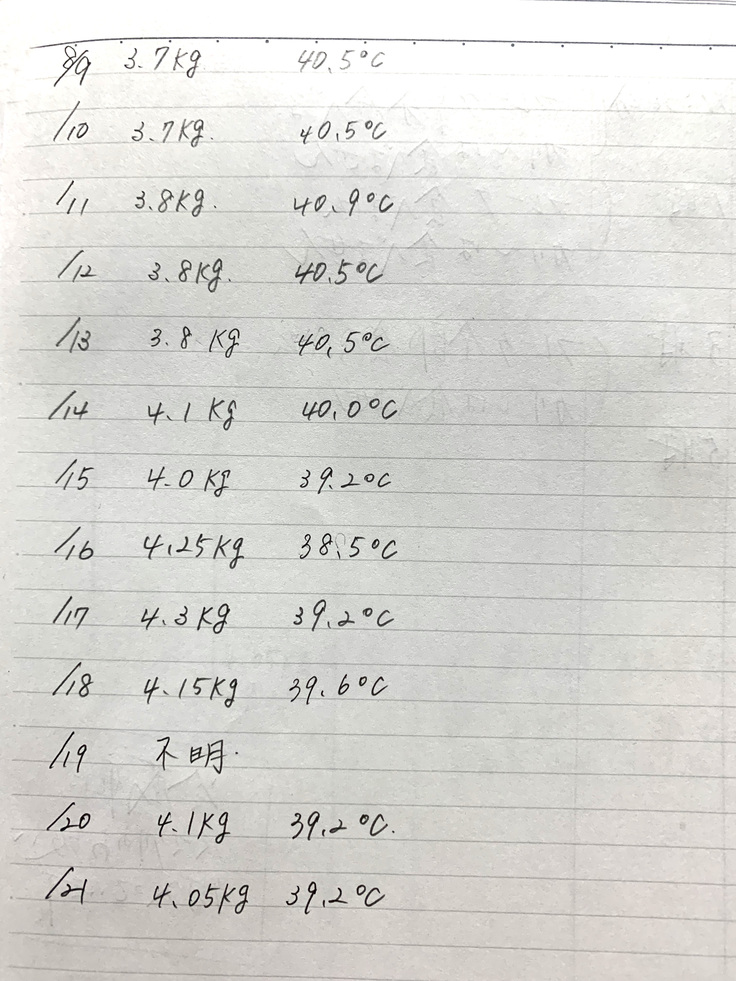 8/9 3.7Kg 40.5°C
/10 3.7Kg. 40.5°C
/11 3.8Kg. 40.9°C
/12 3.8Kg. 40.5°C
/13 3.8 Kg 40.5°C
/14 4.1 Kg 40.0°C
/15 4.0 Kg 39.2°C
/16 4.25Kg 38.5°C
/17 4.3 Kg 39.2°C
/18 4.15Kg 39.6°C
/19 不明.
/20 4.1Kg 39.2°C.
/21 4.05Kg 39.2°C